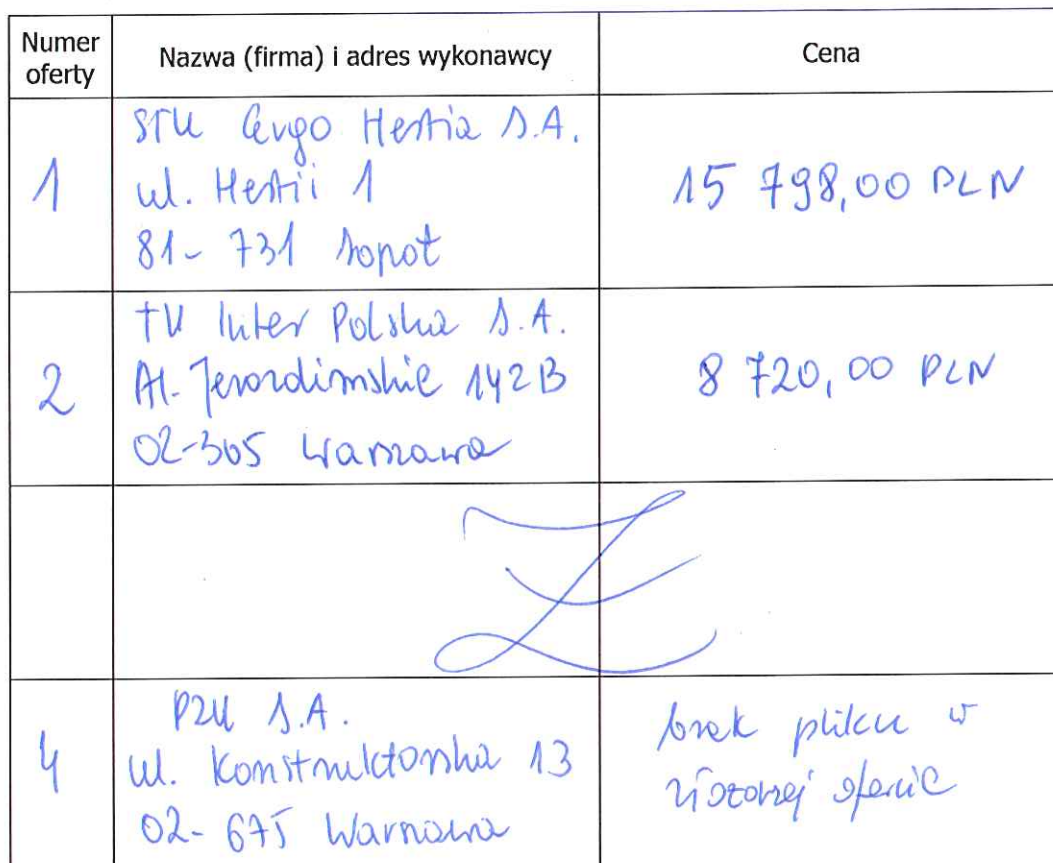 Numer oferty
Nazwa (firma) i adres wykonawcy
Cena
1
STU Ergo Hestia S.A.
ul. Hestii 1
81-731 Sopot
15 798,00 PLN
2
TU Inter Polska S.A.
Al. Jerozolimskie 142B
02-305 Warszawa
8 720,00 PLN
4
PZU S.A.
ul. Konstruktorska 13
02-675 Warszawa
brak pliku w
złożonej ofercie